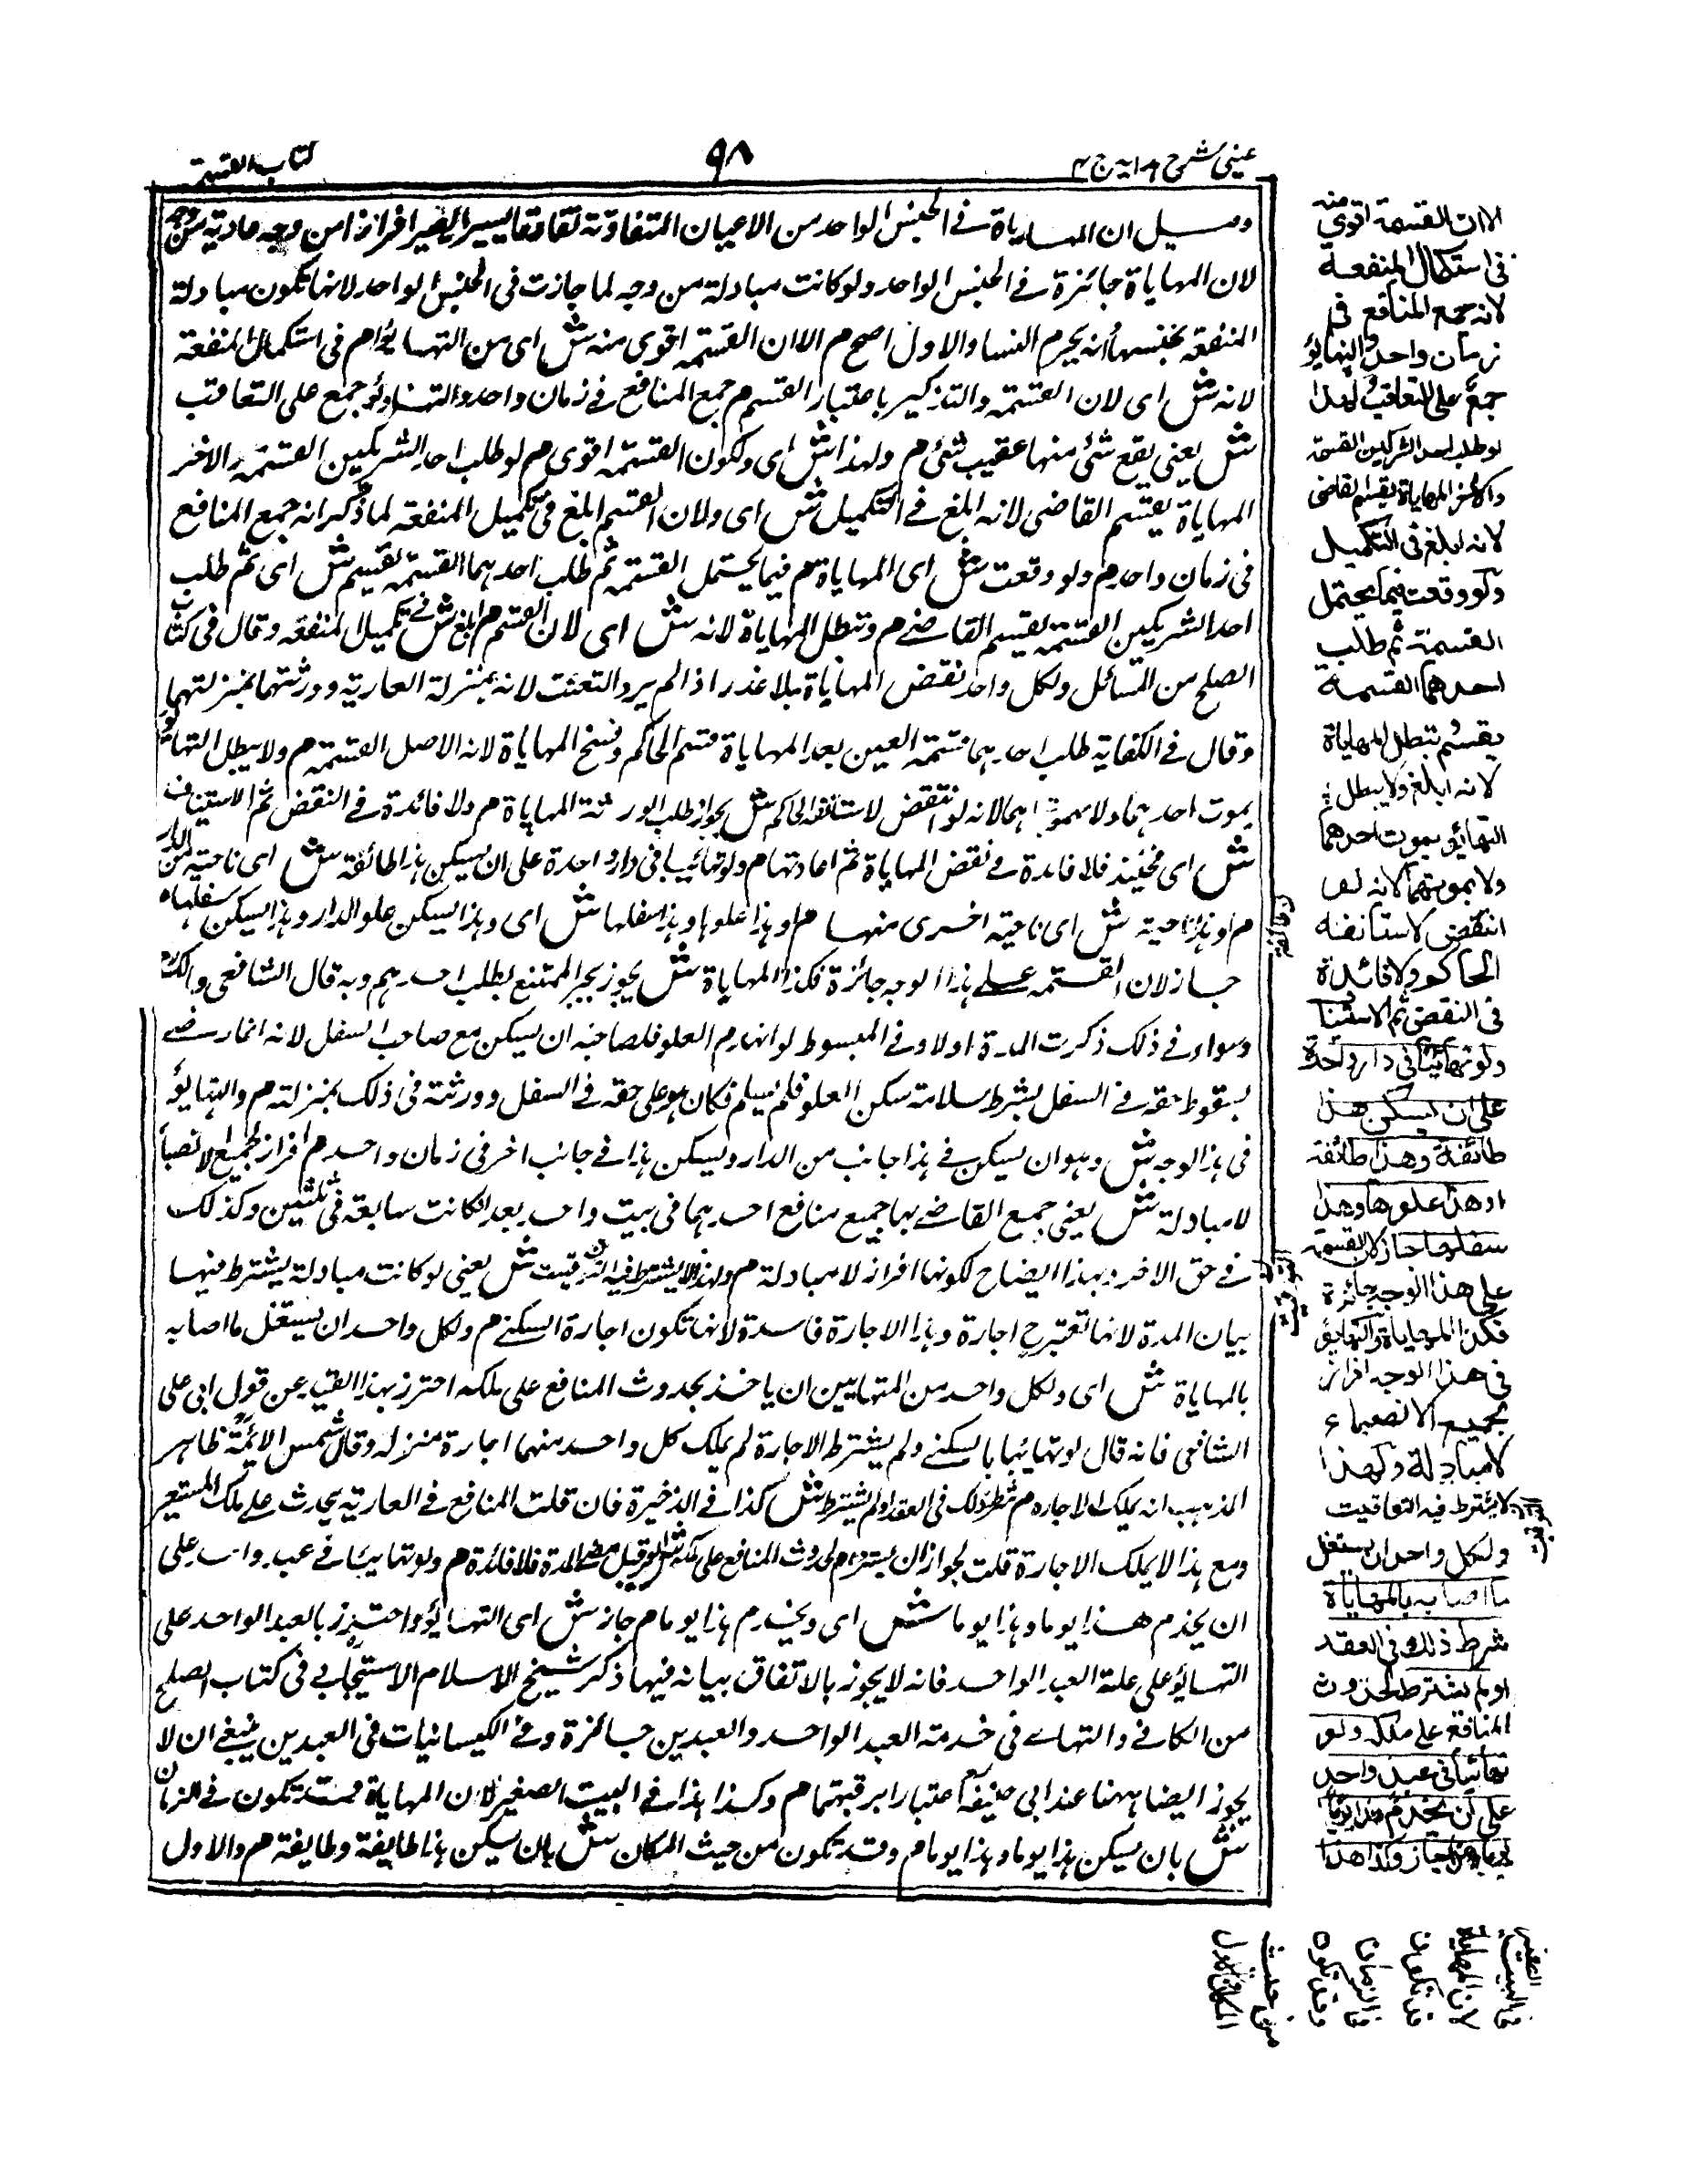 عینی شرح ہدایہ ج ۴
۹۸
کتاب القسمۃ
وقیل ان المہایاۃ فے الجنس الواحد من الاعیان المتفاوتۃ تفاوتا یسیرا افرازا من وجہ عاریۃ من وجہ
لان المہایاۃ جائزۃ فے الجنس الواحد ولو کانت مبادلۃ من وجہ لما جازت فی الجنس الواحد لانہا تکون مبادلۃ
المنفعۃ بجنسہا انہ یحرم النسا والاول اصح م الا ان القسمۃ اقوی منہ ش ای من التہایؤ م فی استکمال المنفعۃ
لانہ ش ای لان القسمۃ والتذکیر باعتبار القسم م جمع المنافع فے زمان واحد والتہایؤ جمع علی التعاقب
ش یعنی یقع شئ منہا عقیب شئ م ولہذا ش ای ولکون القسمۃ اقوی م لو طلب احد الشریکین القسمۃ والاخر
المہایاۃ یقسم القاضی لانہ ابلغ فے التکمیل ش ای ولان القسم ابلغ فی تکمیل المنفعۃ لما ذکر انہ جمع المنافع
فی زمان واحد م ولو وقعت ش ای المہایاۃ م فیما یحتمل القسمۃ ثم طلب احدہما القسمۃ یقسم ش ای ثم طلب
احد الشریکین القسمۃ یقسم القاضے م وتبطل المہایاۃ لانہ ش ای لان القسم م ابلغ ش فے تکمیل المنفعۃ وقال فی کتاب
الصلح من المسائل ولکل واحد نقض المہایاۃ بلا عذر اذا لم یرد التعنت لانہ بمنزلۃ العاریۃ وورثتہا بمنزلتہما
وقال فے الکفایۃ طلب احدہما قسمۃ العین بعد المہایاۃ قسم الحاکم وفسخ المہایاۃ لانہ الاصل القسمۃ م ولا یبطل التہایؤ
بموت احدہما ولا بموتہما لانہ لو انتقض لاستانفہ الحاکم ش بجواز طلب الورثۃ المہایاۃ م ولا فائدۃ فے النقض ثم الاستیناف
ش ای فحینئذ فلا فائدۃ فے نقض المہایاۃ ثم اعادتہا م ولو تہایئا فی دار واحدۃ علی ان یسکن ہذا طائفۃ ش ای ناحیۃ من الدار
م او ہذا ناحیۃ ش ای ناحیۃ اخری منہا م او ہذا علوہا وہذا سفلہا ش ای وہذا یسکن علو الدار وہذا یسکن سفلہا م
جاز لان القسمۃ علے ہذا الوجہ جائزۃ فکذا المہایاۃ ش یجوز یجبر الممتنع بطلب احدہم وبہ قال الشافعی ومالک
وسواء فے ذلک ذکرت المدۃ اولا وفے المبسوط لو انہدم العلو فلصاحبہ ان یسکن مع صاحب السفل لانہ انما رضے
بسقوط حقہ فے السفل بشرط سلامۃ سکن العلو فلم یسلم فکان ہو علی حقہ فے السفل وورثتہ فی ذلک بمنزلتہ م والتہایؤ
فی ہذا الوجہ ش وہو ان یسکن فے ہذا جانب من الدار ویسکن ہذا فے جانب اخر فی زمان واحد م افراز لجمیع الانصباء
لا مبادلۃ ش یعنی جمع القاضے بہا جمیع منافع احدہما فی بیت واحد بعد الکانت سابعۃ فی ثلثین وکذلک
فے حق الاخر وبہذا ایضاح لکونہا افراز لا مبادلۃ م ولہذا لا یشترط فیہ التوقیت ش یعنی لو کانت مبادلۃ یشترط فیہا
بیان المدۃ لانہا تعتبر ح اجارۃ وہذا الاجارۃ فاسدۃ لانہا تکون اجارۃ السکنے م ولکل واحد ان یستغل ما اصابہ
بالمہایاۃ ش ای ولکل واحد من المتہایین ان یاخذ بحدوث المنافع علی ملکہ احترز بہذا القید عن قول ابی علی
الشافعی فانہ قال لو تہایئا بالسکنے ولم یشترط الاجارۃ لم یملک کل واحد منہما اجارۃ منزلہ وقال شمس الائمۃ ظاہر
المذہب انہ یملک الاجارہ م شرط ذلک فی العقد او لم یشترط ش کذا فے الذخیرۃ فان قلت المنافع فے العاریۃ یحدث علے ملک المستعیر
ومع ہذا لا یملک الاجارۃ قلت لجواز ان یسترد م لحدوث المنافع علی ملکہ ش لو قبل مضے المدۃ فلا فائدۃ م ولو تہایئا فے عبد واحد علی
ان یخدم ہذا یوما وہذا یوما ش ای ویخدم ہذا یوما م جاز ش ای التہایؤ واحترز بالعبد الواحد علی
التہایؤ علی غلۃ العبد الواحد فانہ لا یجوز بالاتفاق بیانہ فیہا ذکر شیخ الاسلام الاسبیجابے فی کتاب الصلح
من الکافے والتہایے فی خدمۃ العبد الواحد والعبدین جائزۃ وفے الکیسانیات فی العبدین ینبغے ان لا
یجوز ایضا ہہنا عند ابی حنیفۃ اعتبارا برقبتہما م وکذا ہذا فے البیت الصغیر لان المہایاۃ قد تکون فے الزمان
ش بان یسکن ہذا یوما وہذا یوما م وقد تکون من حیث المکان ش بان یسکن ہذا طایفۃ وطایفۃ م والاول
الا ان القسمة اقوی منه
فی استکمال المنفعة
لانه جمع المنافع فی
زمان واحد والتهایؤ
جمع علی التعاقب لهذا
لو طلب احد الشریکین القسمة
والاخر المهایاة یقسم القاضی
لانه ابلغ فی التکمیل
ولو وقعت فیما یحتمل
القسمة ثم طلب
احدهما القسمة
یقسم وتبطل المهایاة
لانه ابلغ ولا یبطل
التهایؤ بموت احدهما
ولا بموتهما لانه لو
انتقض لاستأنفه
الحاکم ولا فائدة
فی النقض ثم الاستینا
ولو تهائیا فی دار واحدة
علی ان یسکن هذا
طائفة وهذا طائفة
او هذا علوها وهذا
سفلها جاز لان القسمة
علی هذا الوجه جائزة
فکذا المهایاة والتهایؤ
فی هذا الوجه افراز
لجمیع الانصباء
لا مبادلة ولهذا
لا یشترط فیه التاقیت
ولکل واحد ان یستغل
ما اصابه بالمهایاة
شرط ذلک فی العقد
او لم یشترط لحدوث
المنافع علی ملکه ولو
تهائیا فی عبد واحد
علی ان یخدم هذا یوما
وهذا یوما جاز وکذا هذا
فی البیت الصغیر
لان المهایاة
قد تکون
فی الزمان
وقد تکون
من حیث
المکان والاول